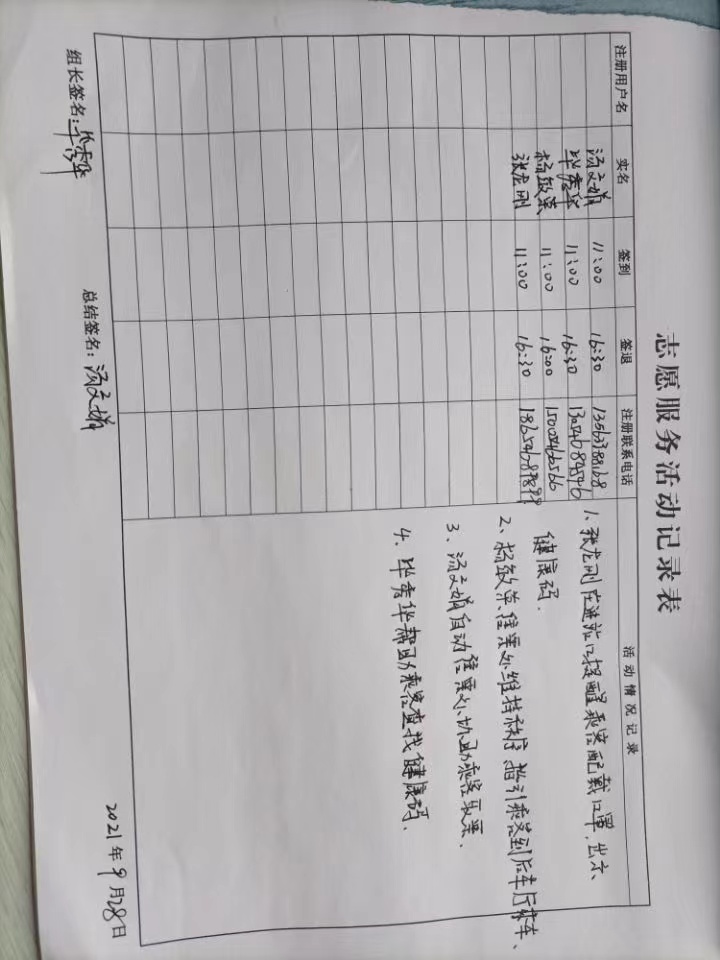 志愿服务活动记录表
注册用户名 实名 签到 签退 注册联系电话 活动情况记录
汤文娟 11:00 16:30 13563788168
毕秀华 11:00 16:30 13054684546
杨敏荣 11:00 16:00 15005466566
张龙刚 11:00 16:30
1、张龙刚在进站口提醒乘客配戴口罩,出示
健康码.
2、杨敏荣售票处维持秩序,指引乘客到候车厅乘车、
3、汤文娟自动售票处协助乘客取票.
4、毕秀华帮助乘客查找健康码.
组长签名:毕秀华 总结签名:汤文娟 2021年9月28日